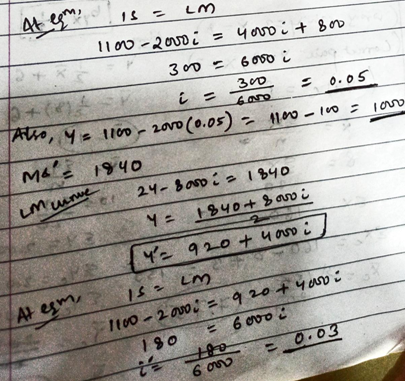 At eqm, IS = LM
1100 - 2000i = 4000i + 800
300 = 6000i
i = 300/6000 = 0.05
Also, Y = 1100 - 2000(0.05) = 1100 - 100 = 1000
Ms' = 1840
LM curve 2Y - 8000i = 1840
Y = (1840 + 8000i)/2
Y' = 920 + 4000i
At eqm, IS = LM
1100 - 2000i = 920 + 4000i
180 = 6000i
i' = 180/6000 = 0.03